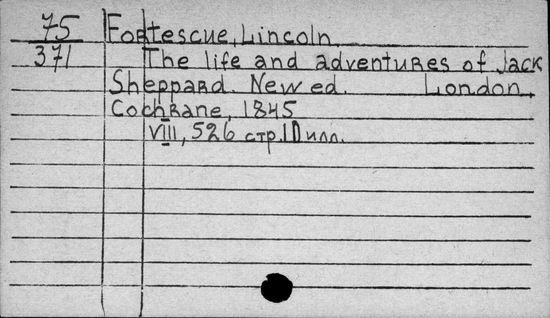 75 Fortescue, Lincoln
371 The life and adventures of Jack
Sheppard. New ed. London,
Cochrane, 1845
VIII, 526 стр. 10 илл.